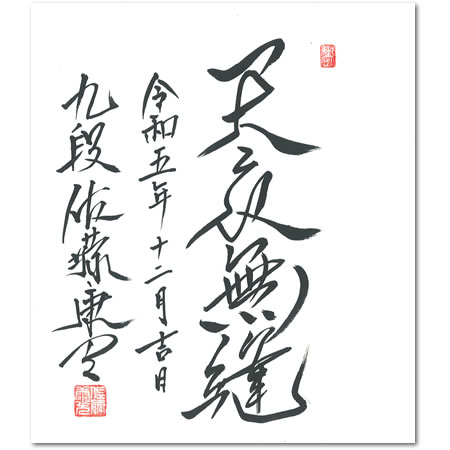 天衣無縫
令和五年十二月吉日
九段佐藤康光